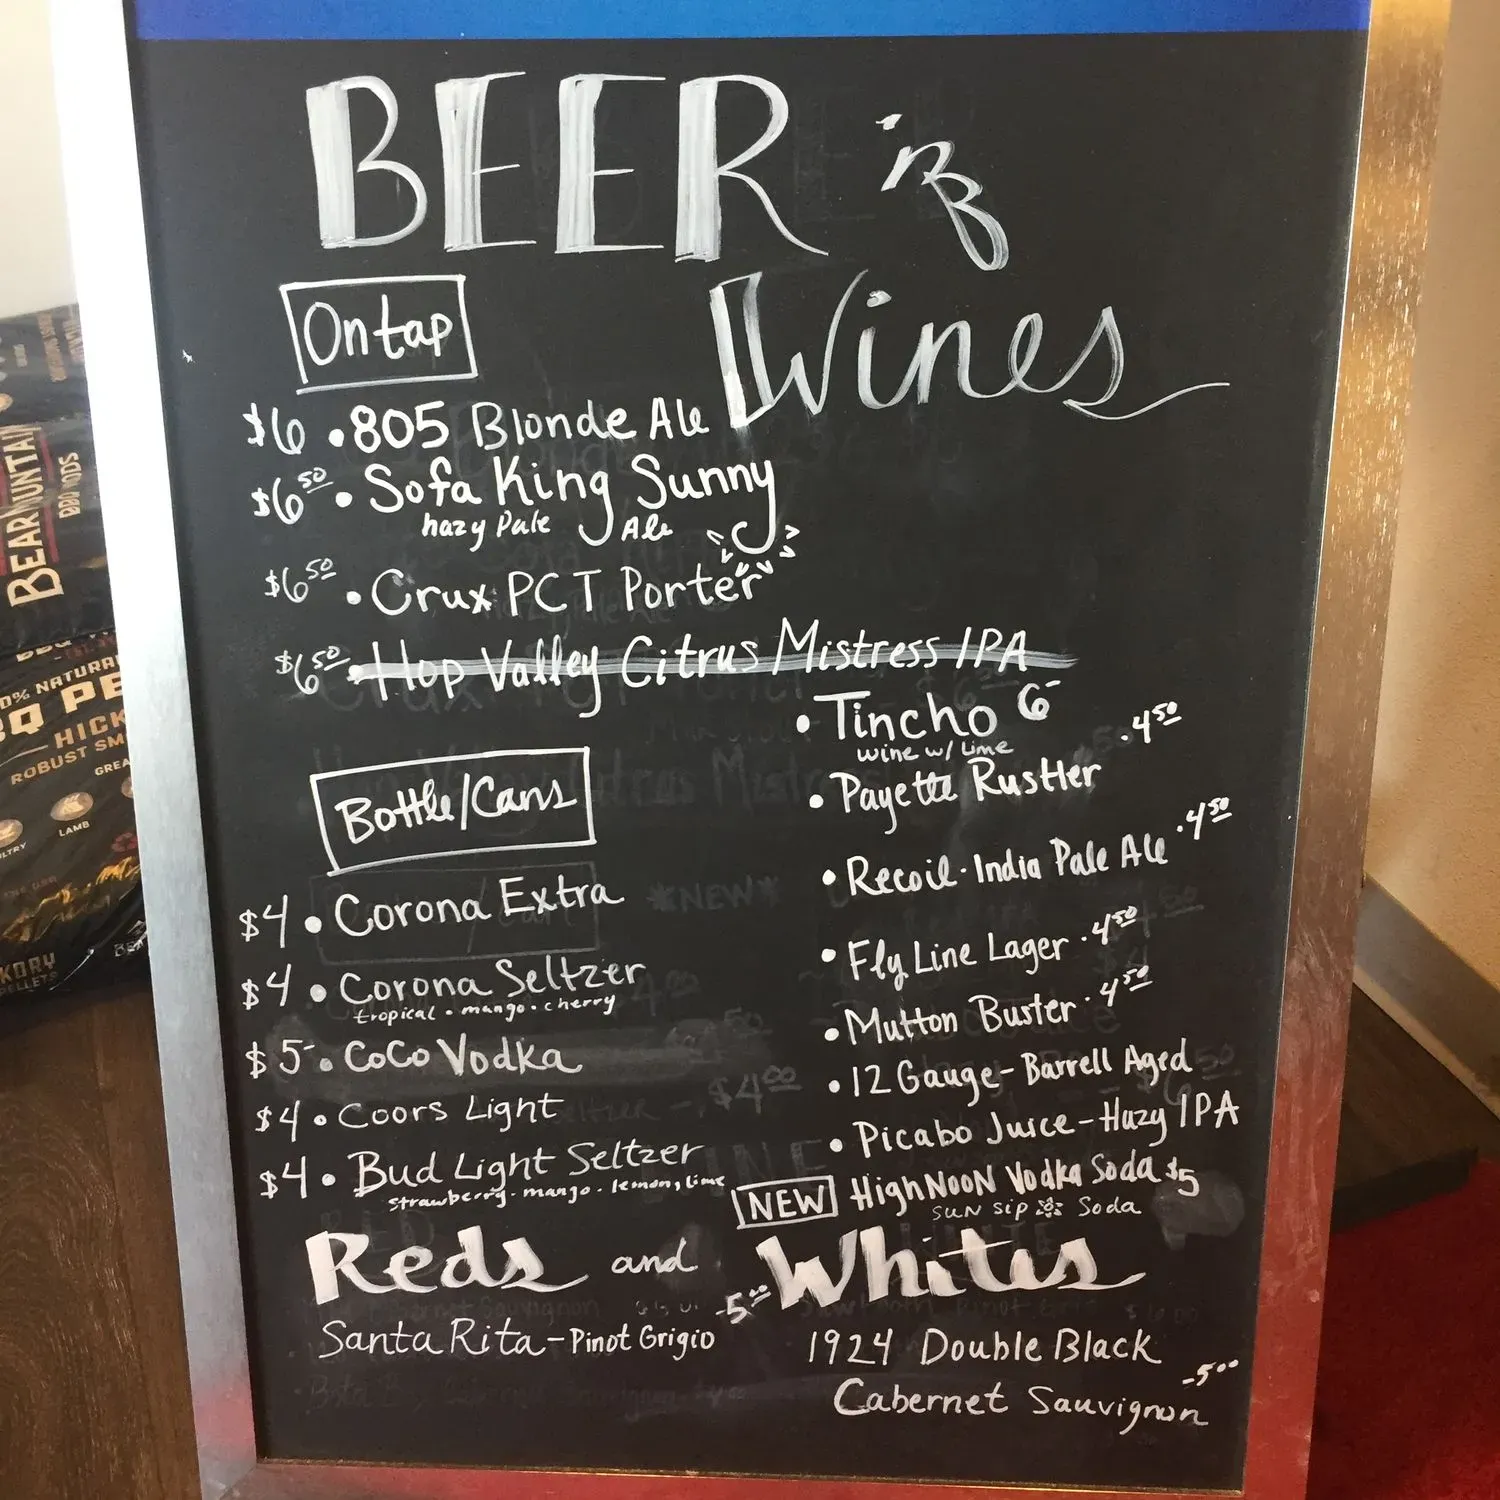 BEER 'n B
Wines
On tap
$6 • 805 Blonde Ale
$6.50 • Sofa King Sunny
hazy Pale Ale
$6.50 • Crux PCT Porter
$6.50 • Hop Valley Citrus Mistress IPA
Bottle/Cans
$4 • Corona Extra
$4 • Corona Seltzer
tropical • mango • cherry
$5- • CoCo Vodka
$4 • Coors Light
$4 • Bud Light Seltzer
strawberry • mango • lemon, lime
• Tincho 6-
wine w/ lime
• Payette Rustler • 4.50
• Recoil • India Pale Ale • 4.50
• Fly Line Lager • 4.50
• Mutton Buster • 4.50
• 12 Gauge - Barrell Aged
• Picabo Juice - Hazy IPA
NEW High NOON Vodka Soda $5
SUN Sip Soda
Reds and Whites
Santa Rita - Pinot Grigio -5.00
1924 Double Black
Cabernet Sauvignon -5.00
BEAR MOUNTAIN
BBQ
100% NATURAL
HICK
ROBUST SM
GREA
LAMB
LTRY
KORY
PELLETS